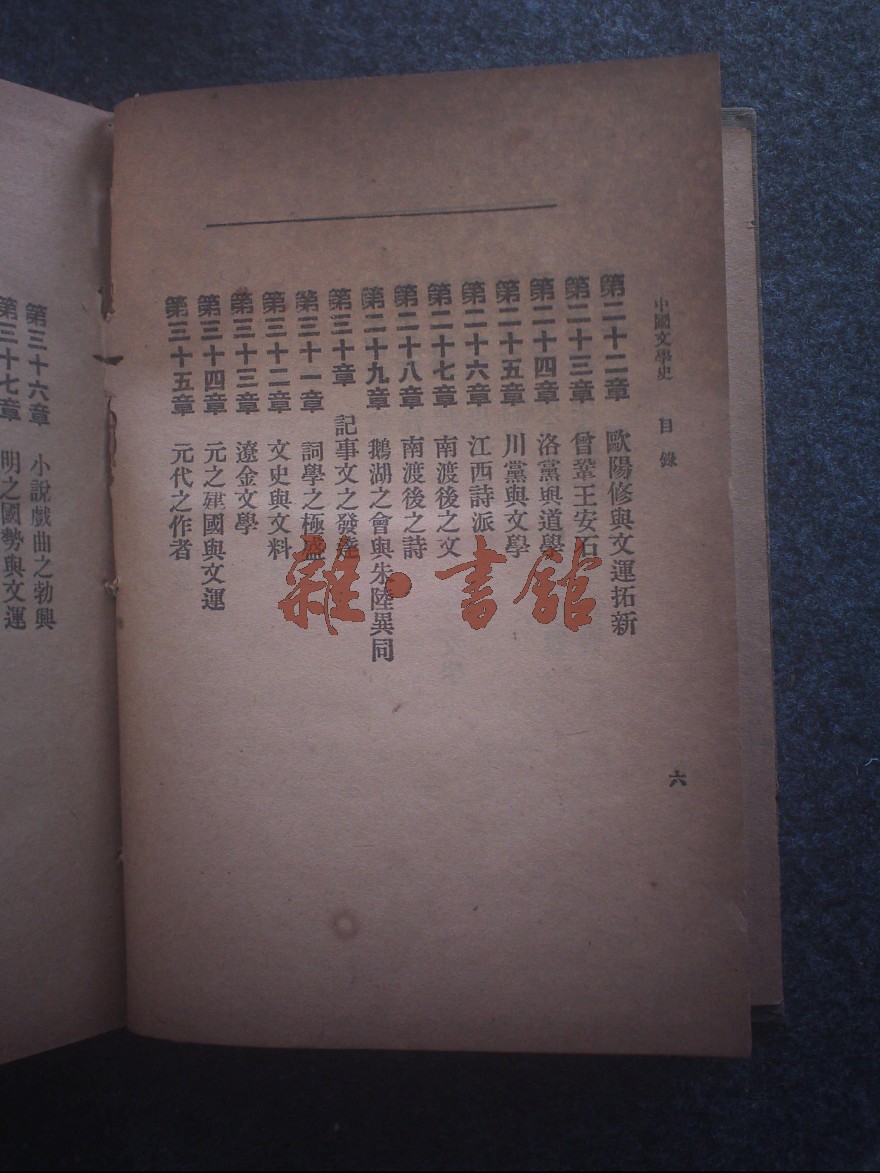 中國文學史 目錄 六
第二十二章 歐陽修與文運拓新
第二十三章 曾鞏王安石
第二十四章 洛黨與道學
第二十五章 川黨與文學
第二十六章 江西詩派
第二十七章 南渡後之文
第二十八章 南渡後之詩
第二十九章 鵝湖之會與朱陸異同
第三十章 記事文之發達
第三十一章 詞學之極盛
第三十二章 文史與文料
第三十三章 遼金文學
第三十四章 元之建國與文運
第三十五章 元代之作者
第三十六章 小說戲曲之勃興
第三十七章 明之國勢與文運
雜·書館